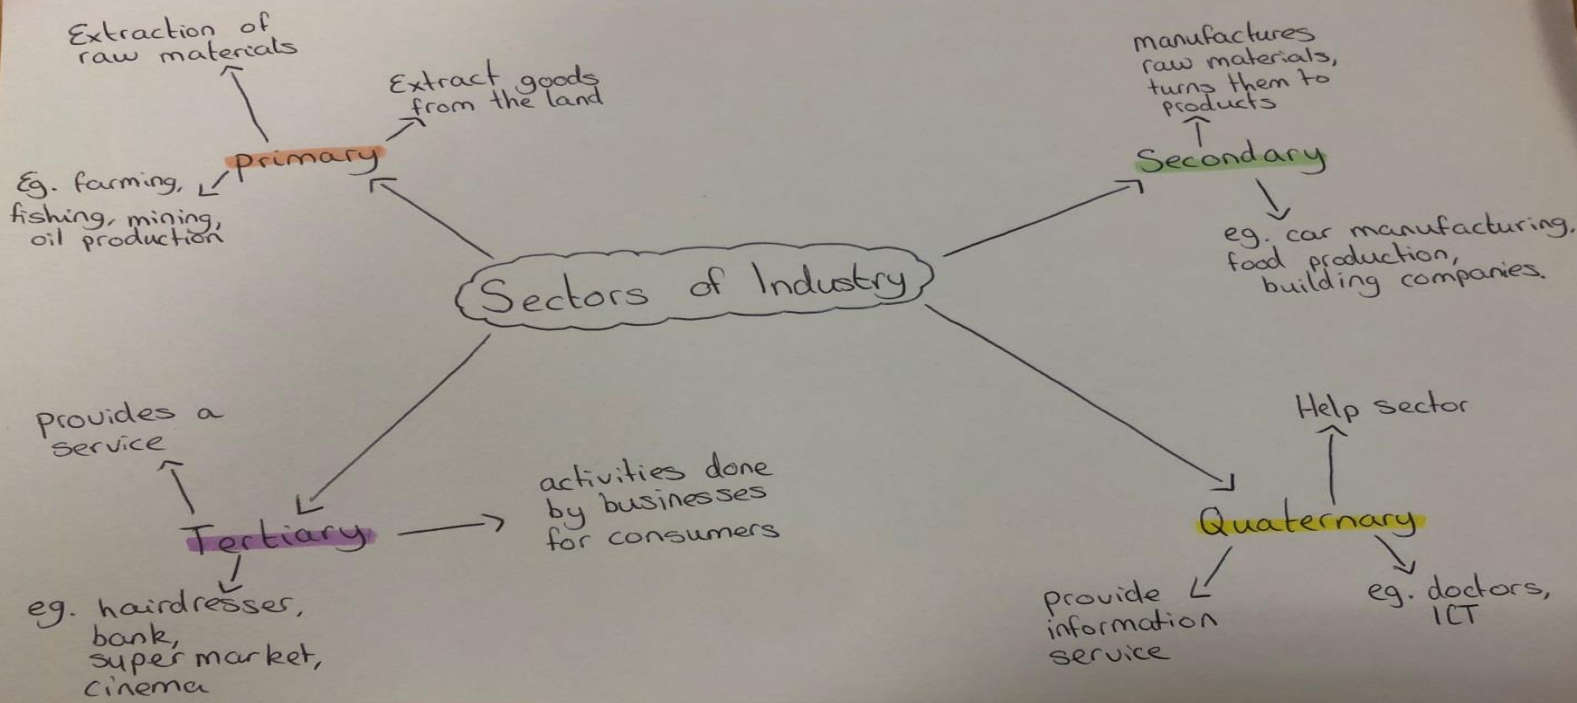 Sectors of Industry
Primary
Extraction of
raw materials
Extract goods
from the land
Eg. farming,
fishing, mining,
oil production
Secondary
manufactures
raw materials,
turns them to
products
eg. car manufacturing,
food production,
building companies.
Tertiary
provides a
service
activities done
by businesses
for consumers
eg. hairdresser,
bank,
super market,
cinema
Quaternary
Help sector
provide
information
service
eg. doctors,
ICT